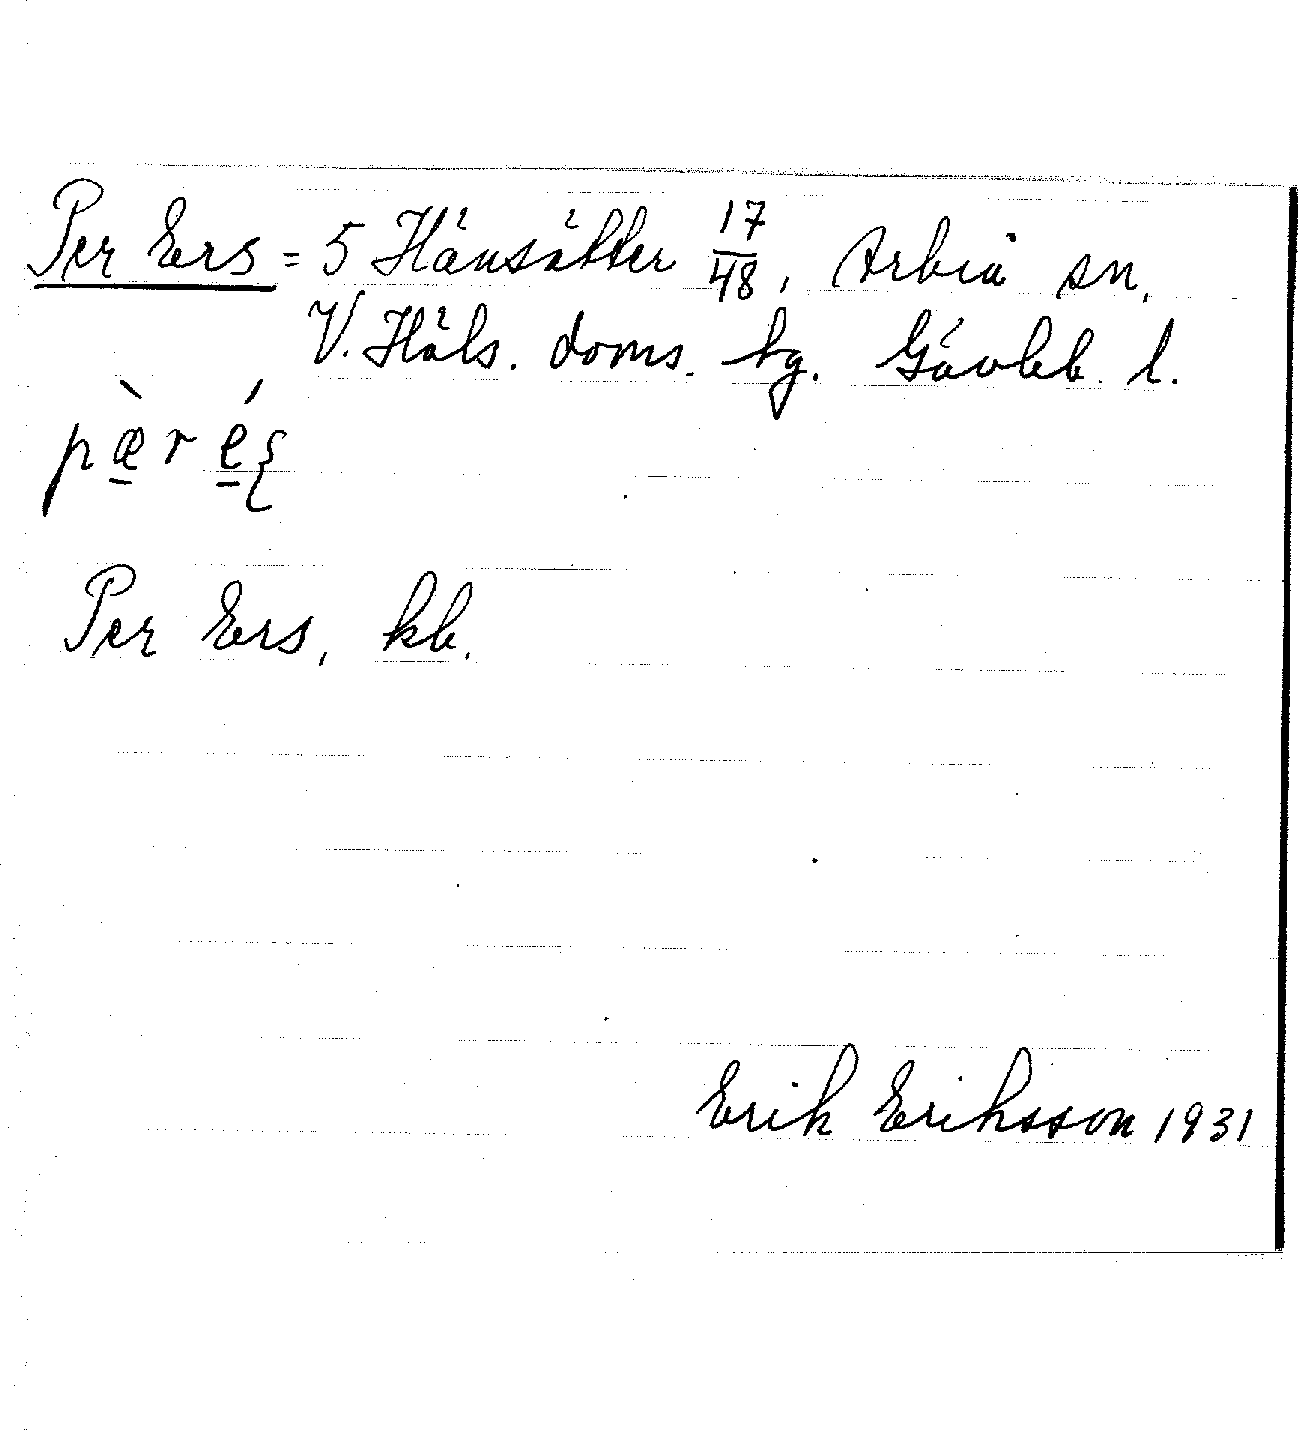 Per Ers = 5 Hänsätter 17/48, Arbrå sn,
V. Häls. doms. hg. Gävleb. l.
pæ̀r é̠ʂ
Per Ers, kb.
Erik Eriksson 1931